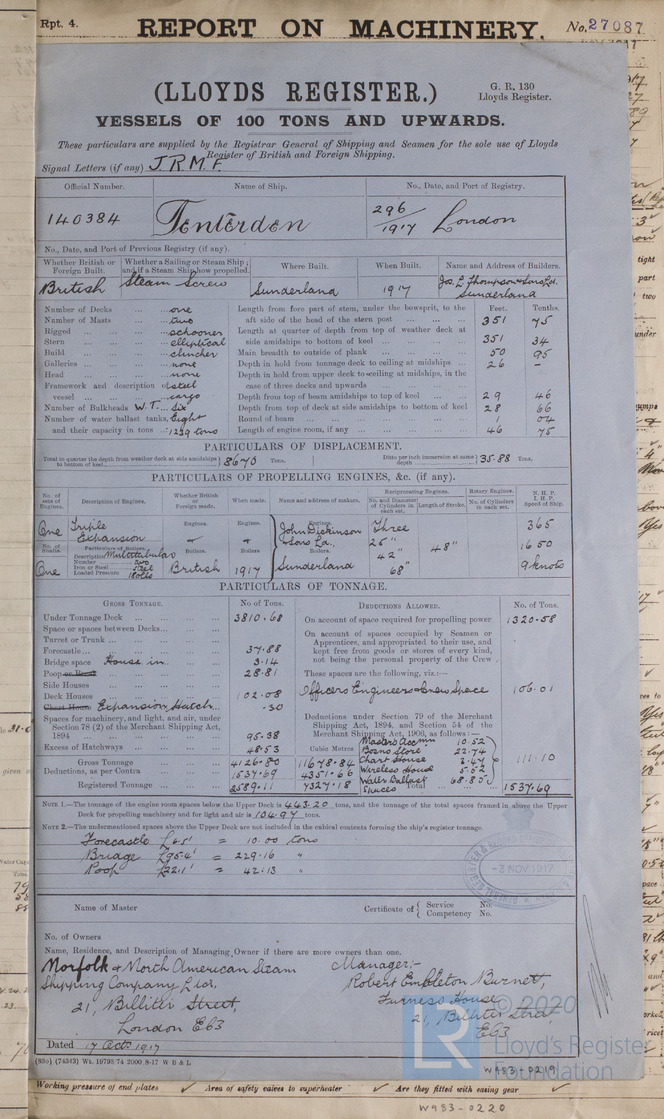 Rpt. 4.
REPORT ON MACHINERY.
No. 27087
(LLOYDS REGISTER.)
G. R. 130
Lloyds Register.
VESSELS OF 100 TONS AND UPWARDS.
These particulars are supplied by the Registrar General of Shipping and Seamen for the sole use of Lloyds
Register of British and Foreign Shipping.
Signal Letters (if any) J.R.M.F.
Official Number. Name of Ship. No., Date, and Port of Registry.
140384 Tenterden 296/1917 London
No., Date, and Port of Previous Registry (if any).
Whether British or Foreign Built. Whether a Sailing or Steam Ship; and if a Steam Ship, how propelled. Where Built. When Built. Name and Address of Builders.
British Steam Screw Sunderland 1917 Jos. L. Thompson & Sons Ld. Sunderland
Number of Decks one
Number of Masts two
Rigged schooner
Stern elliptical
Build clincher
Galleries none
Head none
Framework and description of vessel steel cargo
Number of Bulkheads W.T. Six
Number of water ballast tanks, Eight
and their capacity in tons 1239 tons
Feet. Tenths.
Length from fore part of stem, under the bowsprit, to the aft side of the head of the stern post 351 75
Length at quarter of depth from top of weather deck at side amidships to bottom of keel 351 34
Main breadth to outside of plank 50 95
Depth in hold from tonnage deck to ceiling at midships 26 –
Depth in hold from upper deck to ceiling at midships, in the case of three decks and upwards
Depth from top of beam amidships to top of keel 29 46
Depth from top of deck at side amidships to bottom of keel 28 66
Round of beam 1 04
Length of engine room, if any 46 75
PARTICULARS OF DISPLACEMENT.
Total to quarter the depth from weather deck at side amidships to bottom of keel 8670 Tons.
Ditto per inch immersion at same depth 35.88 Tons.
PARTICULARS OF PROPELLING ENGINES, &c. (if any).
No. of sets of Engines. Description of Engines. Whether British or Foreign made. When made. Name and address of makers. Reciprocating Engines. Rotary Engines. N. H. P. I. H. P. Speed of Ship.
No. and Diameter of Cylinders in each set. Length of Stroke. No. of Cylinders in each set.
One Triple Expansion Engines. Engines. Engines. John Dickinson & Sons Ld. Three 365
No. of Shafts. Particulars of Boilers. Boilers. Boilers Boilers. 25" 42" 68" 48" 1650
Description Multitubular
Number two
Iron or Steel steel
Loaded Pressure 180lbs
One British 1917 Sunderland 9 knots
PARTICULARS OF TONNAGE.
GROSS TONNAGE. No of Tons.
Under Tonnage Deck 3810.68
Space or spaces between Decks
Turret or Trunk
Forecastle 37.88
Bridge space House in 3.14
Poop or Break 28.81
Side Houses
Deck Houses 102.08
Chart House Expansion Hatch .30
Spaces for machinery, and light, and air, under Section 78 (2) of the Merchant Shipping Act, 1894 95.38
Excess of Hatchways 48.53
Cubic Metres
Gross Tonnage 4126.80 11678.84
Deductions, as per Contra 1537.69 4351.66
Registered Tonnage 2589.11 7327.18
DEDUCTIONS ALLOWED. No. of Tons.
On account of space required for propelling power 1320.58
On account of spaces occupied by Seamen or Apprentices, and appropriated to their use, and kept free from goods or stores of every kind, not being the personal property of the Crew
These spaces are the following, viz.:—
Officers Engineers & Crew Space 106.01
Deductions under Section 79 of the Merchant Shipping Act, 1894, and Section 54 of the Merchant Shipping Act, 1906, as follows:—
Masters Accmn 10.52
Bosns Store 22.74
Chart House 3.47
Wireless House 5.52
Water Ballast Spaces 68.85
111.10
Total 1537.69
NOTE 1.—The tonnage of the engine room spaces below the Upper Deck is 443.20 tons, and the tonnage of the total spaces framed in above the Upper
Deck for propelling machinery and for light and air is 104.97 tons.
NOTE 2.—The undermentioned spaces above the Upper Deck are not included in the cubical contents forming the ship's register tonnage.
Forecastle £6.5' = 10.00 tons
Bridge £95.4' = 229.16 "
Poop £22.1' = 42.13 "
-3 NOV 1917
Name of Master Certificate of { Service No. Competency No.
No. of Owners
Name, Residence, and Description of Managing Owner if there are more owners than one.
Norfolk & North American Steam
Shipping Company Ltd,
21, Billiter Street,
London EC3
Manager:-
Robert Embleton Burnett,
Furness House
21, Billiter Street,
EC3
Dated 17 Oct. 1917
(83o) (74343) Wt. 19793/74 2000 8-17 W B & L
© 2020
LR
Lloyd's Register
Foundation
W983-0219
Working pressure of end plates Area of safety valves to superheater Are they fitted with easing gear
W983-0220